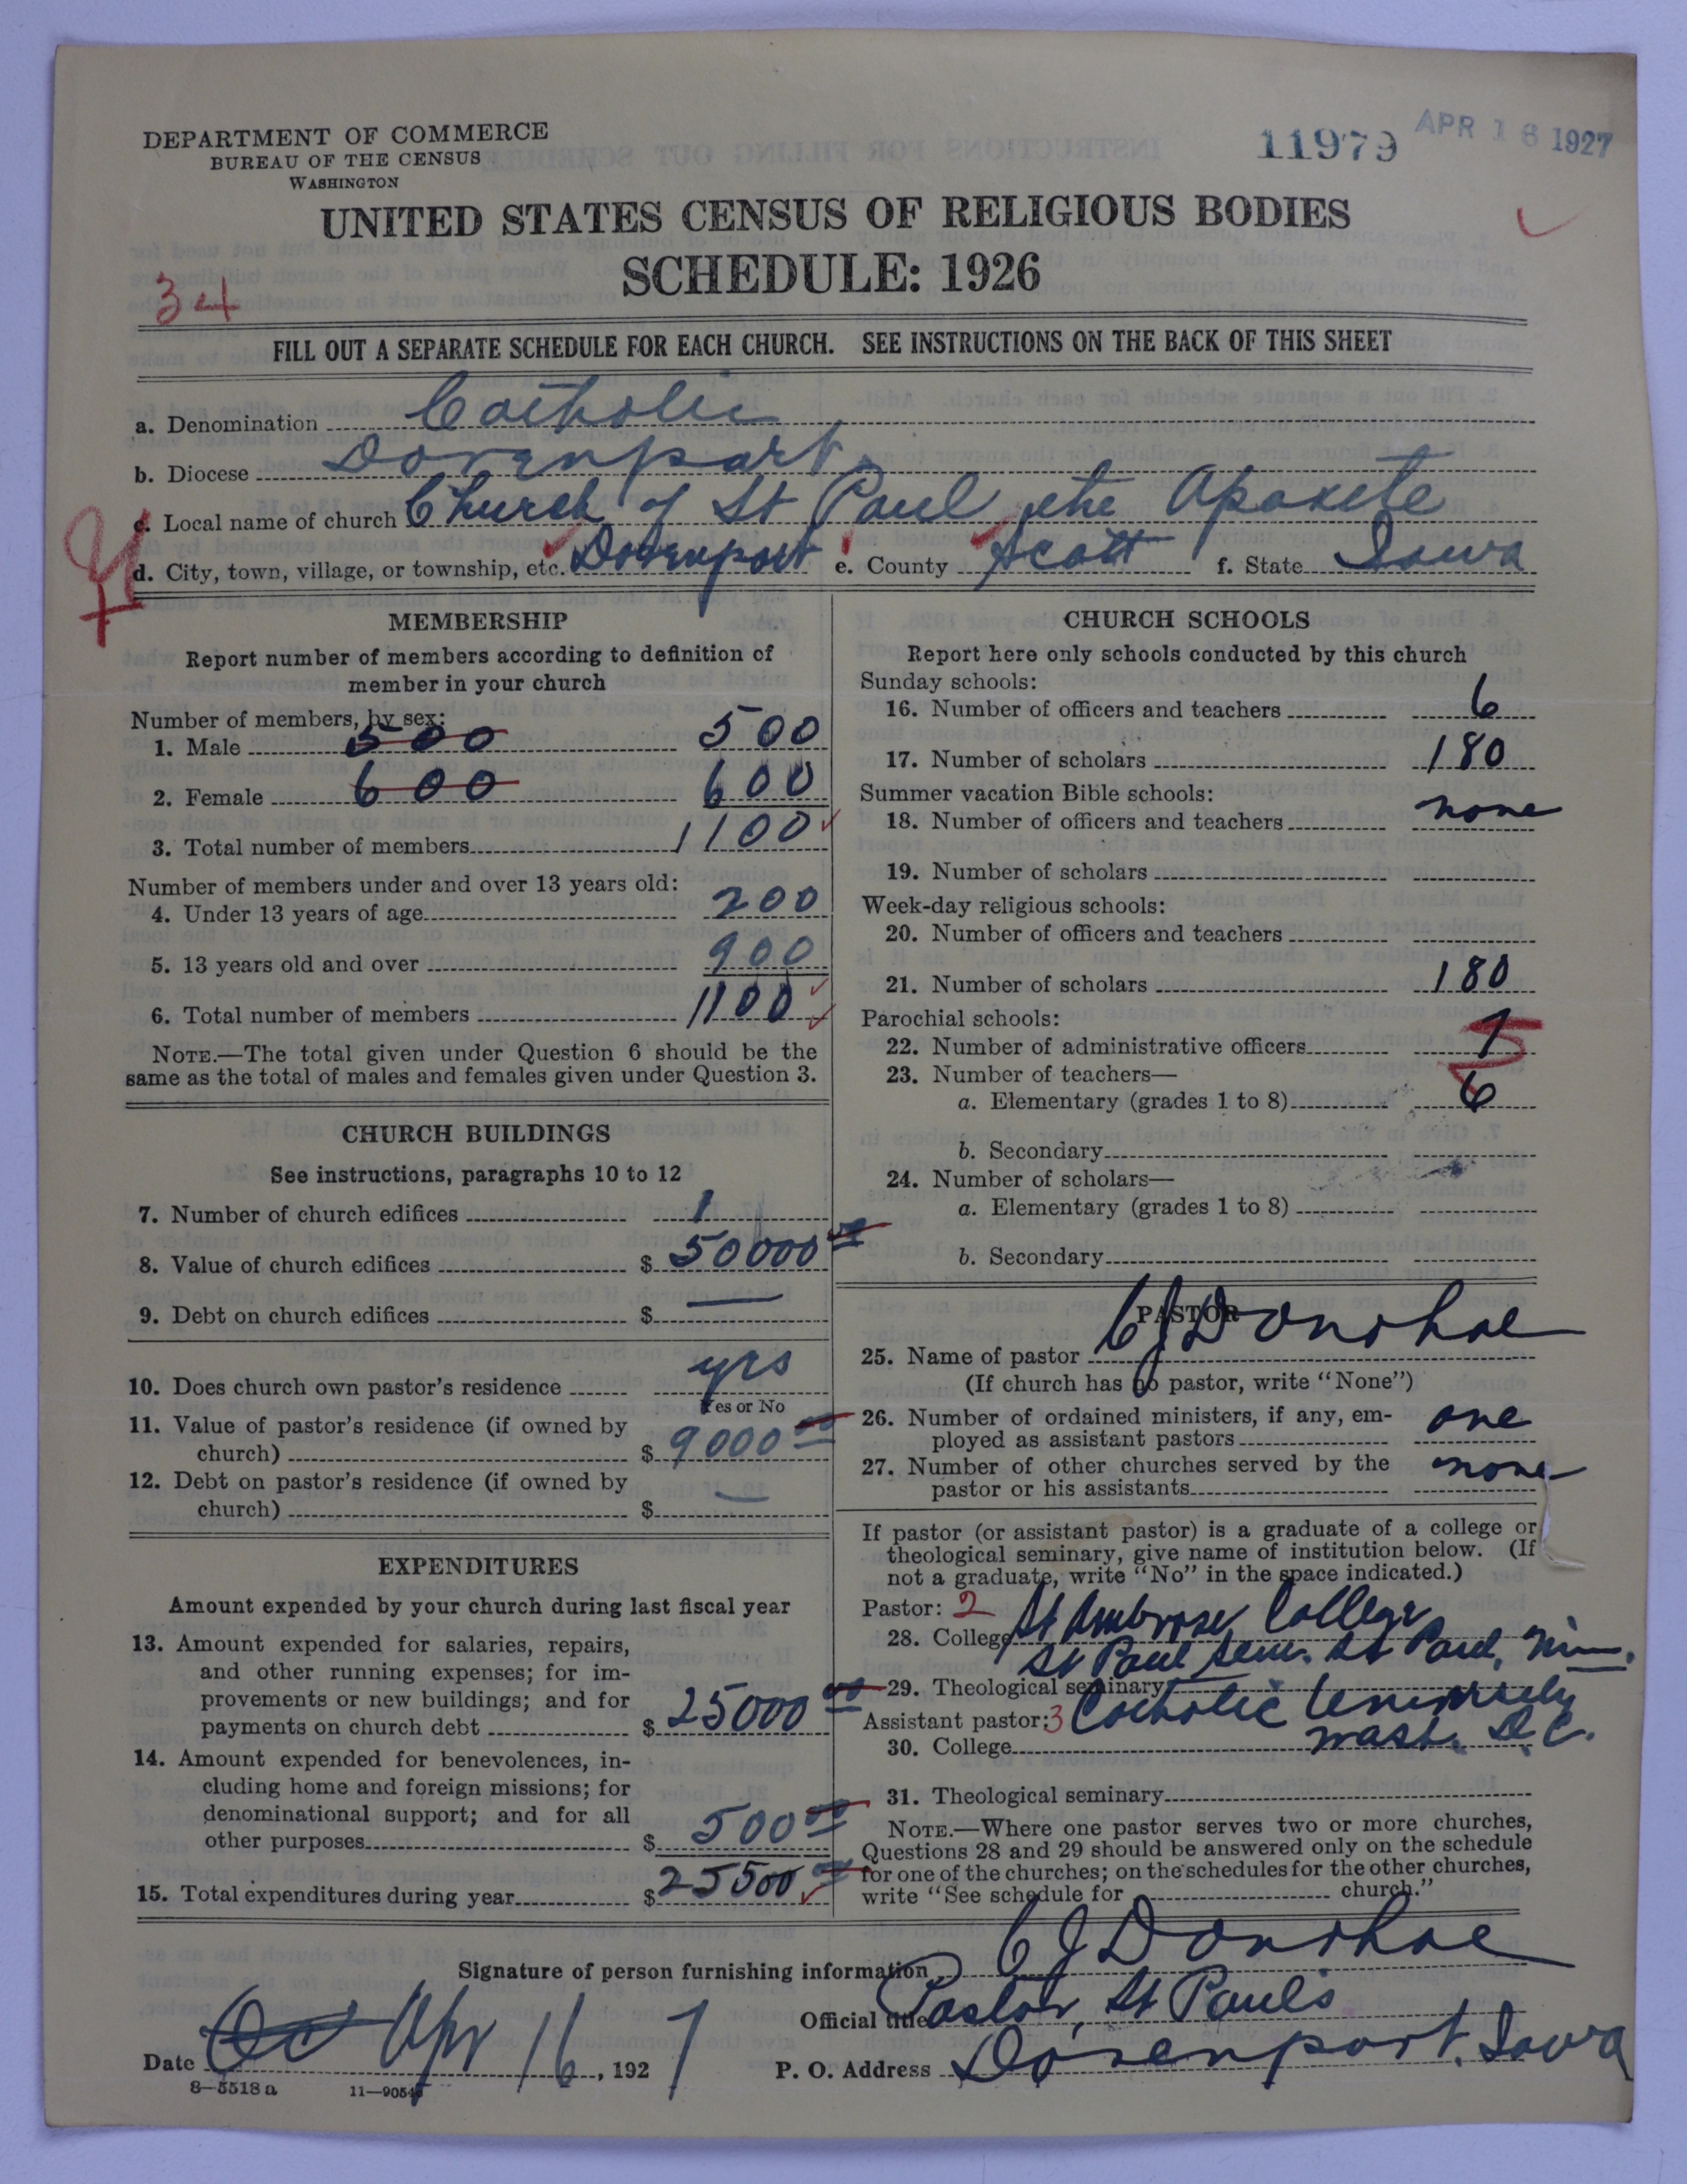 DEPARTMENT OF COMMERCE
BUREAU OF THE CENSUS
WASHINGTON
11979
APR 16 1927
UNITED STATES CENSUS OF RELIGIOUS BODIES
SCHEDULE: 1926
34
FILL OUT A SEPARATE SCHEDULE FOR EACH CHURCH. SEE INSTRUCTIONS ON THE BACK OF THIS SHEET
a. Denomination Catholic
b. Diocese Davenport
c. Local name of church Church of St Paul the Apostle
d. City, town, village, or township, etc. Davenport e. County Scott f. State Iowa
MEMBERSHIP
Report number of members according to definition of
member in your church
Number of members, by sex:
1. Male 500 500
2. Female 600 600
3. Total number of members 1100
Number of members under and over 13 years old:
4. Under 13 years of age 200
5. 13 years old and over 900
6. Total number of members 1100
NOTE.—The total given under Question 6 should be the
same as the total of males and females given under Question 3.
CHURCH BUILDINGS
See instructions, paragraphs 10 to 12
7. Number of church edifices 1
8. Value of church edifices $ 50000 00
9. Debt on church edifices $ —
10. Does church own pastor's residence yes
Yes or No
11. Value of pastor's residence (if owned by
church) $ 9000 00
12. Debt on pastor's residence (if owned by
church) $ —
EXPENDITURES
Amount expended by your church during last fiscal year
13. Amount expended for salaries, repairs,
and other running expenses; for im-
provements or new buildings; and for
payments on church debt $ 25000 00
14. Amount expended for benevolences, in-
cluding home and foreign missions; for
denominational support; and for all
other purposes $ 500 00
15. Total expenditures during year $ 25500 00
CHURCH SCHOOLS
Report here only schools conducted by this church
Sunday schools:
16. Number of officers and teachers 6
17. Number of scholars 180
Summer vacation Bible schools:
18. Number of officers and teachers none
19. Number of scholars
Week-day religious schools:
20. Number of officers and teachers
21. Number of scholars 180
Parochial schools:
22. Number of administrative officers 1
23. Number of teachers—
a. Elementary (grades 1 to 8) 6
b. Secondary
24. Number of scholars—
a. Elementary (grades 1 to 8)
b. Secondary
PASTOR
25. Name of pastor CJ Donohoe
(If church has no pastor, write "None")
26. Number of ordained ministers, if any, em-
ployed as assistant pastors one
27. Number of other churches served by the
pastor or his assistants none
If pastor (or assistant pastor) is a graduate of a college or
theological seminary, give name of institution below. (If
not a graduate, write "No" in the space indicated.)
Pastor: 2
28. College St Ambrose College
St Paul Sem. St Paul, Min.
29. Theological seminary
Assistant pastor: 3 Catholic University
30. College Wash. D.C.
31. Theological seminary
NOTE.—Where one pastor serves two or more churches,
Questions 28 and 29 should be answered only on the schedule
for one of the churches; on the schedules for the other churches,
write "See schedule for church."
Signature of person furnishing information CJ Donohoe
Official title Pastor, St Paul's
Date Oc Apr 16, 1927
P. O. Address Davenport, Iowa
8—5518 a 11—9054